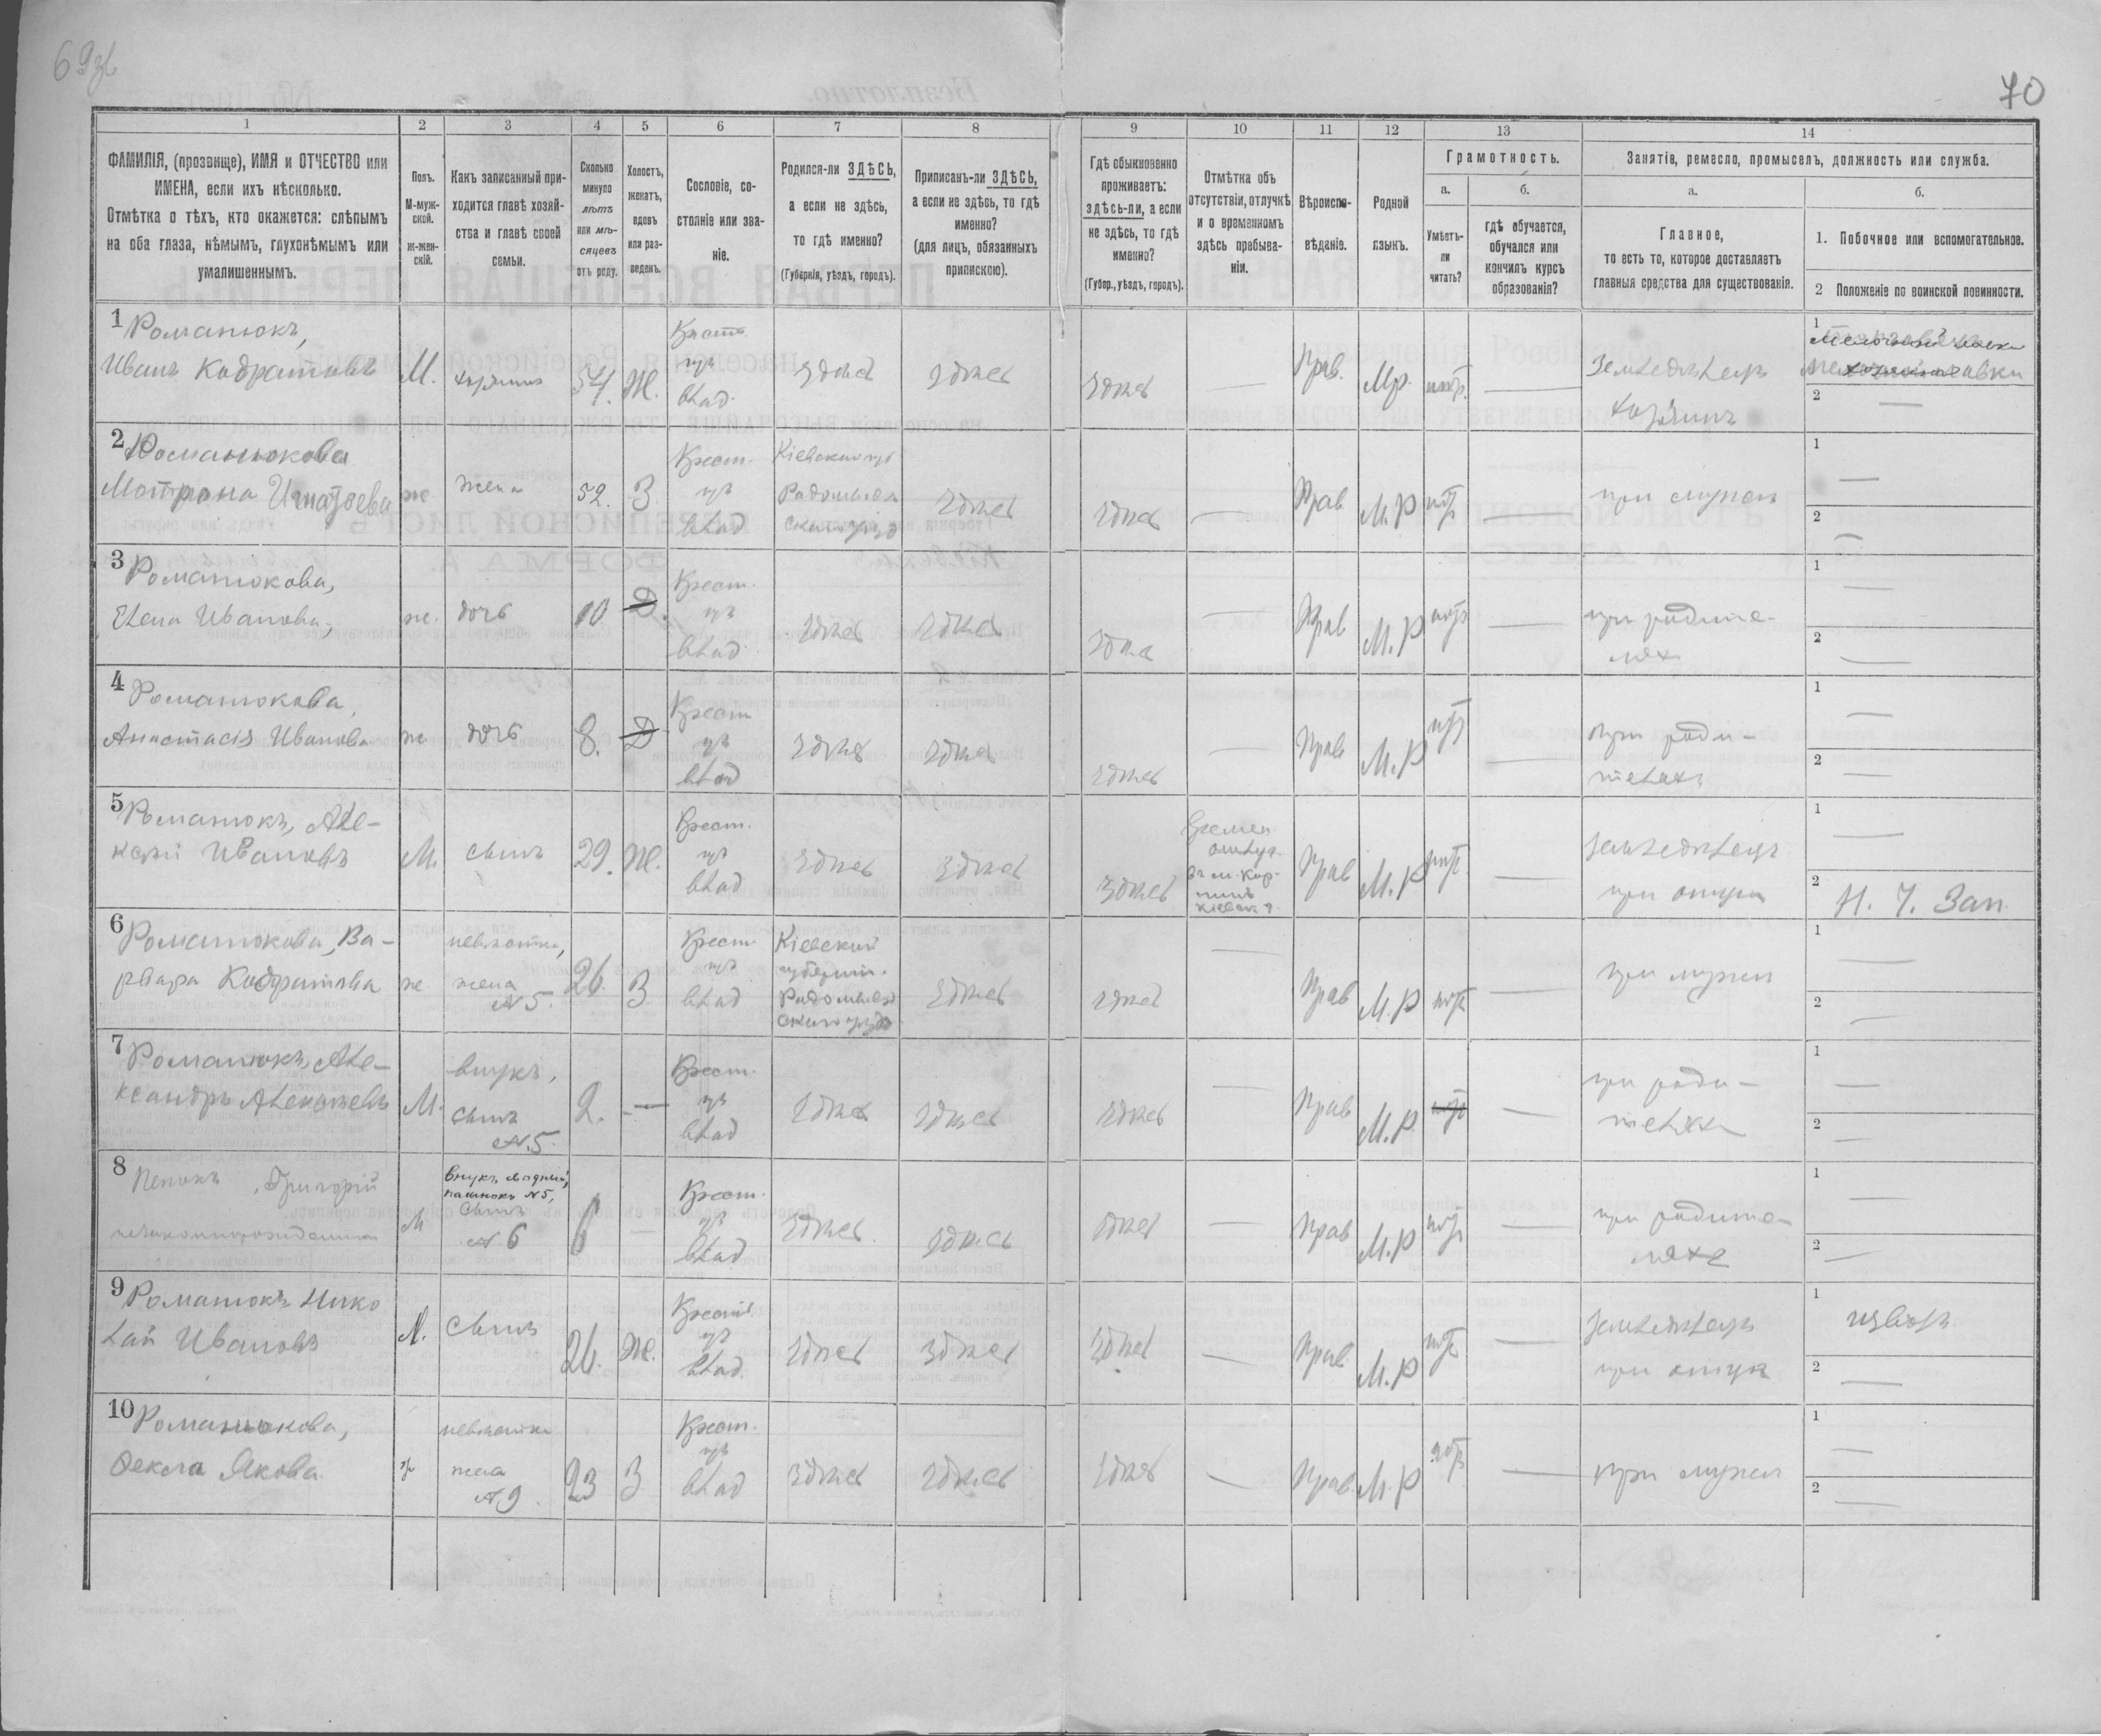 69зв
70
1 2 3 4 5 6 7 8 9 10 11 12 13 14
ФАМИЛІЯ, (прозвище), ИМЯ и ОТЧЕСТВО или
ИМЕНА, если ихъ нѣсколько.
Отмѣтка о тѣхъ, кто окажется: слѣпымъ
на оба глаза, нѣмымъ, глухонѣмымъ или
умалишеннымъ.
Полъ.
М-муж-
ской.
Ж-жен-
скій.
Какъ записанный при-
ходится главѣ хозяй-
ства и главѣ своей
семьи.
Сколько
минуло
лѣтъ
или мѣ-
сяцевъ
отъ роду.
Холостъ,
женатъ,
вдовъ
или раз-
веденъ.
Сословіе, со-
стояніе или зва-
ніе.
Родился-ли ЗДѢСЬ,
а если не здѣсь,
то гдѣ именно?
(Губернія, уѣздъ, городъ).
Приписанъ-ли ЗДѢСЬ,
а если не здѣсь, то гдѣ
именно?
(для лицъ, обязанныхъ
припискою).
Гдѣ обыкновенно
проживаетъ:
здѣсь-ли, а если
не здѣсь, то гдѣ
именно?
(Губер., уѣздъ, городъ).
Отмѣтка объ
отсутствіи, отлучкѣ
и о временномъ
здѣсь пребыва-
ніи.
Вѣроиспо-
вѣданіе.
Родной
языкъ.
Грамотность.
а.
Умѣетъ-
ли
читать?
б.
гдѣ обучается,
обучался или
кончилъ курсъ
образованія?
Занятіе, ремесло, промыселъ, должность или служба.
а.
Главное,
то есть то, которое доставляетъ
главныя средства для существованія.
б.
1. Побочное или вспомогательное.
2 Положеніе по воинской повинности.
1 Романюкъ,
Иванъ Кодратовъ
М.
хозяинъ
54.
Ж.
Крест.
изъ
влад.
здѣсь
здѣсь
здѣсь
—
Прав.
М.р.
нѣтъ
—
Земледѣлецъ
хозяинъ
1
2 —
2 Романюкова
Мотрона Игнатьева
ж
жена
52.
З
Крест.
изъ
влад
Кіевской губ
Радомысл
скаго уѣзд
здѣсь
здѣсь
—
Прав
М.Р
нѣтъ
—
при мужѣ
1 —
2 —
3 Романюкова,
Елена Иванова,
ж.
дочь
10
Д.
Крест.
изъ
влад
здѣсь
здѣсь
здѣсь
—
Прав
М.Р
нѣтъ
—
при родите-
ляхъ
1 —
2 —
4 Романюкова,
Анастасія Иванова
ж
дочь
8.
Д
Крест
изъ
влад
здѣсь
здѣсь
здѣсь
—
Прав
М.Р
нѣтъ
—
при роди-
теляхъ
1 —
2 —
5 Романюкъ, Але-
ксѣй Ивановъ
М.
сынъ
29.
Ж.
Крест.
изъ
влад
здѣсь
здѣсь
здѣсь
Времен
отлуч.
въ м. Кор-
нинъ
Кіевск г
Прав
М.Р
нѣтъ
—
Земледѣлецъ
при отцѣ
1 —
2 Н. Ч. Зап
6 Романюкова, Ва-
рвара Кодратова
ж
невѣстка,
жена
№5.
26.
З
Крест
изъ
влад
Кіевской
губерніи.
Радомысл
скаго уѣзда
здѣсь
здѣсь
—
Прав
М.Р
нѣтъ
—
при мужѣ
1 —
2 —
7 Романюкъ, Але-
ксандръ Алексѣевъ
М.
внукъ,
сынъ
№5.
2.
—
Крест.
изъ
влад
здѣсь
здѣсь
здѣсь
—
Прав
М.Р.
нѣтъ
—
при роди-
теляхъ
1 —
2 —
8 , Григорій
незаконнорожденный
М
внукъ сводный,
пасынокъ №5,
сынъ
№6
6
—
Крест.
изъ
влад
здѣсь
здѣсь
здѣсь
—
Прав
М.Р
нѣтъ
—
при родите-
ляхъ
1 —
2 —
9 Романюкъ Нико
лай Ивановъ
М.
сынъ
26.
Ж.
Крест.
изъ
влад.
здѣсь
здѣсь
здѣсь
—
Прав.
М.Р
нѣтъ
—
Земледѣлецъ
при отцѣ
1 извозъ
2 —
10 Романюкова,
Текла Якова
ж
невѣстка
жена
№9.
23
З
Крест.
изъ
влад
здѣсь
здѣсь
здѣсь
—
Прав.
М.Р
нѣтъ
—
при мужѣ
1 —
2 —